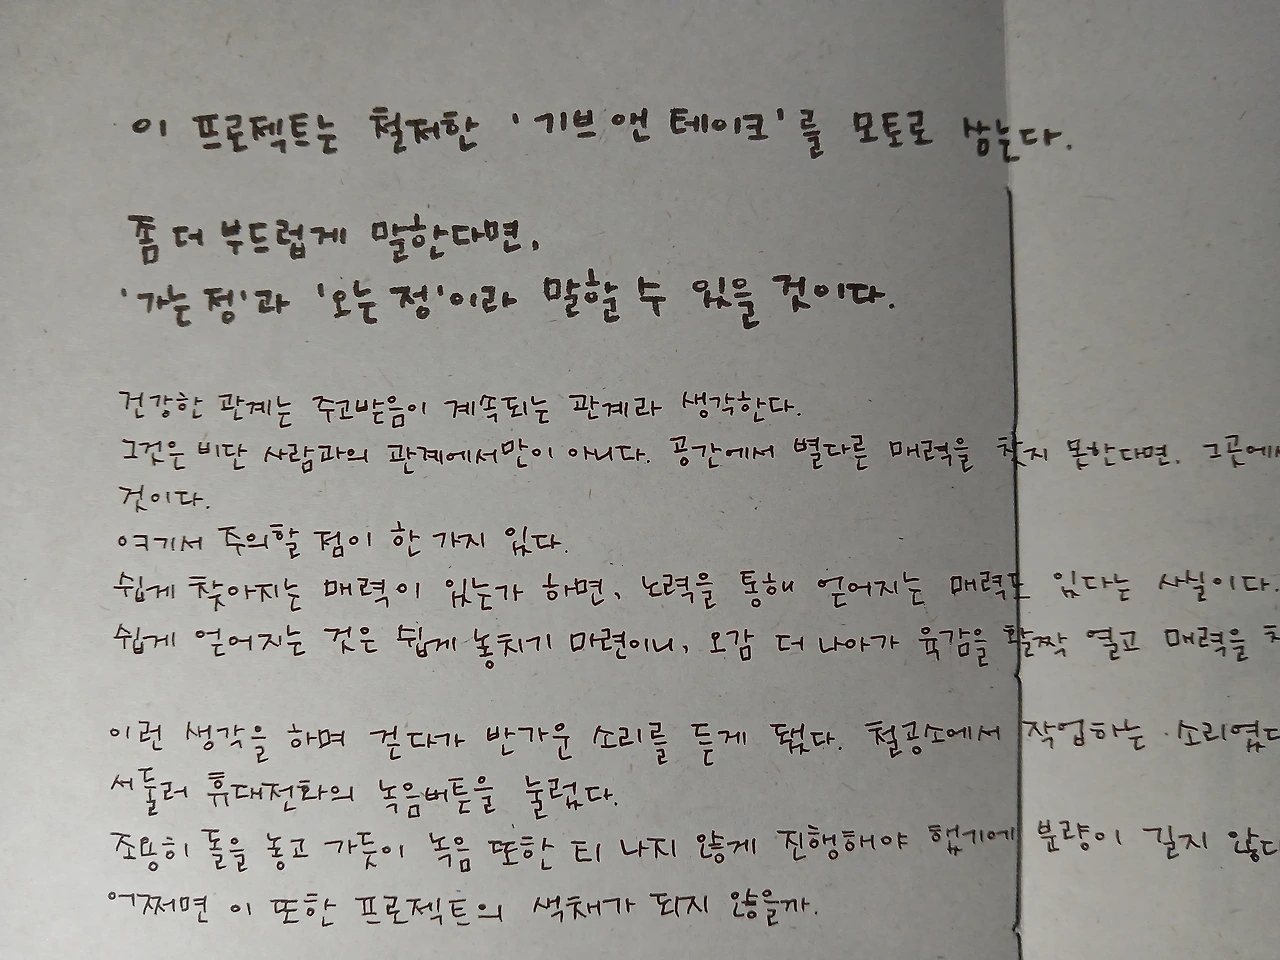 이 프로젝트는 철저한 '기브 앤 테이크'를 모토로 삼는다.
좀 더 부드럽게 말한다면,
'가는 정'과 '오는 정'이라 말할 수 있을 것이다.
건강한 관계는 주고받음이 계속되는 관계라 생각한다.
그것은 비단 사람과의 관계에서만이 아니다. 공간에서 별다른 매력을 찾지 못한다면, 그곳에서
것이다.
여기서 주의할 점이 한 가지 있다.
쉽게 찾아지는 매력이 있는가 하면, 노력을 통해 얻어지는 매력도 있다는 사실이다.
쉽게 얻어지는 것은 쉽게 놓치기 마련이니, 오감 더 나아가 육감을 활짝 열고 매력을
이런 생각을 하며 걷다가 반가운 소리를 듣게 됐다. 철공소에서 작업하는 소리였다
서둘러 휴대전화의 녹음버튼을 눌렀다.
조용히 돌을 놓고 가듯이 녹음 또한 티 나지 않게 진행해야 했기에 분량이 길지 않다
어쩌면 이 또한 프로젝트의 색채가 되지 않을까.